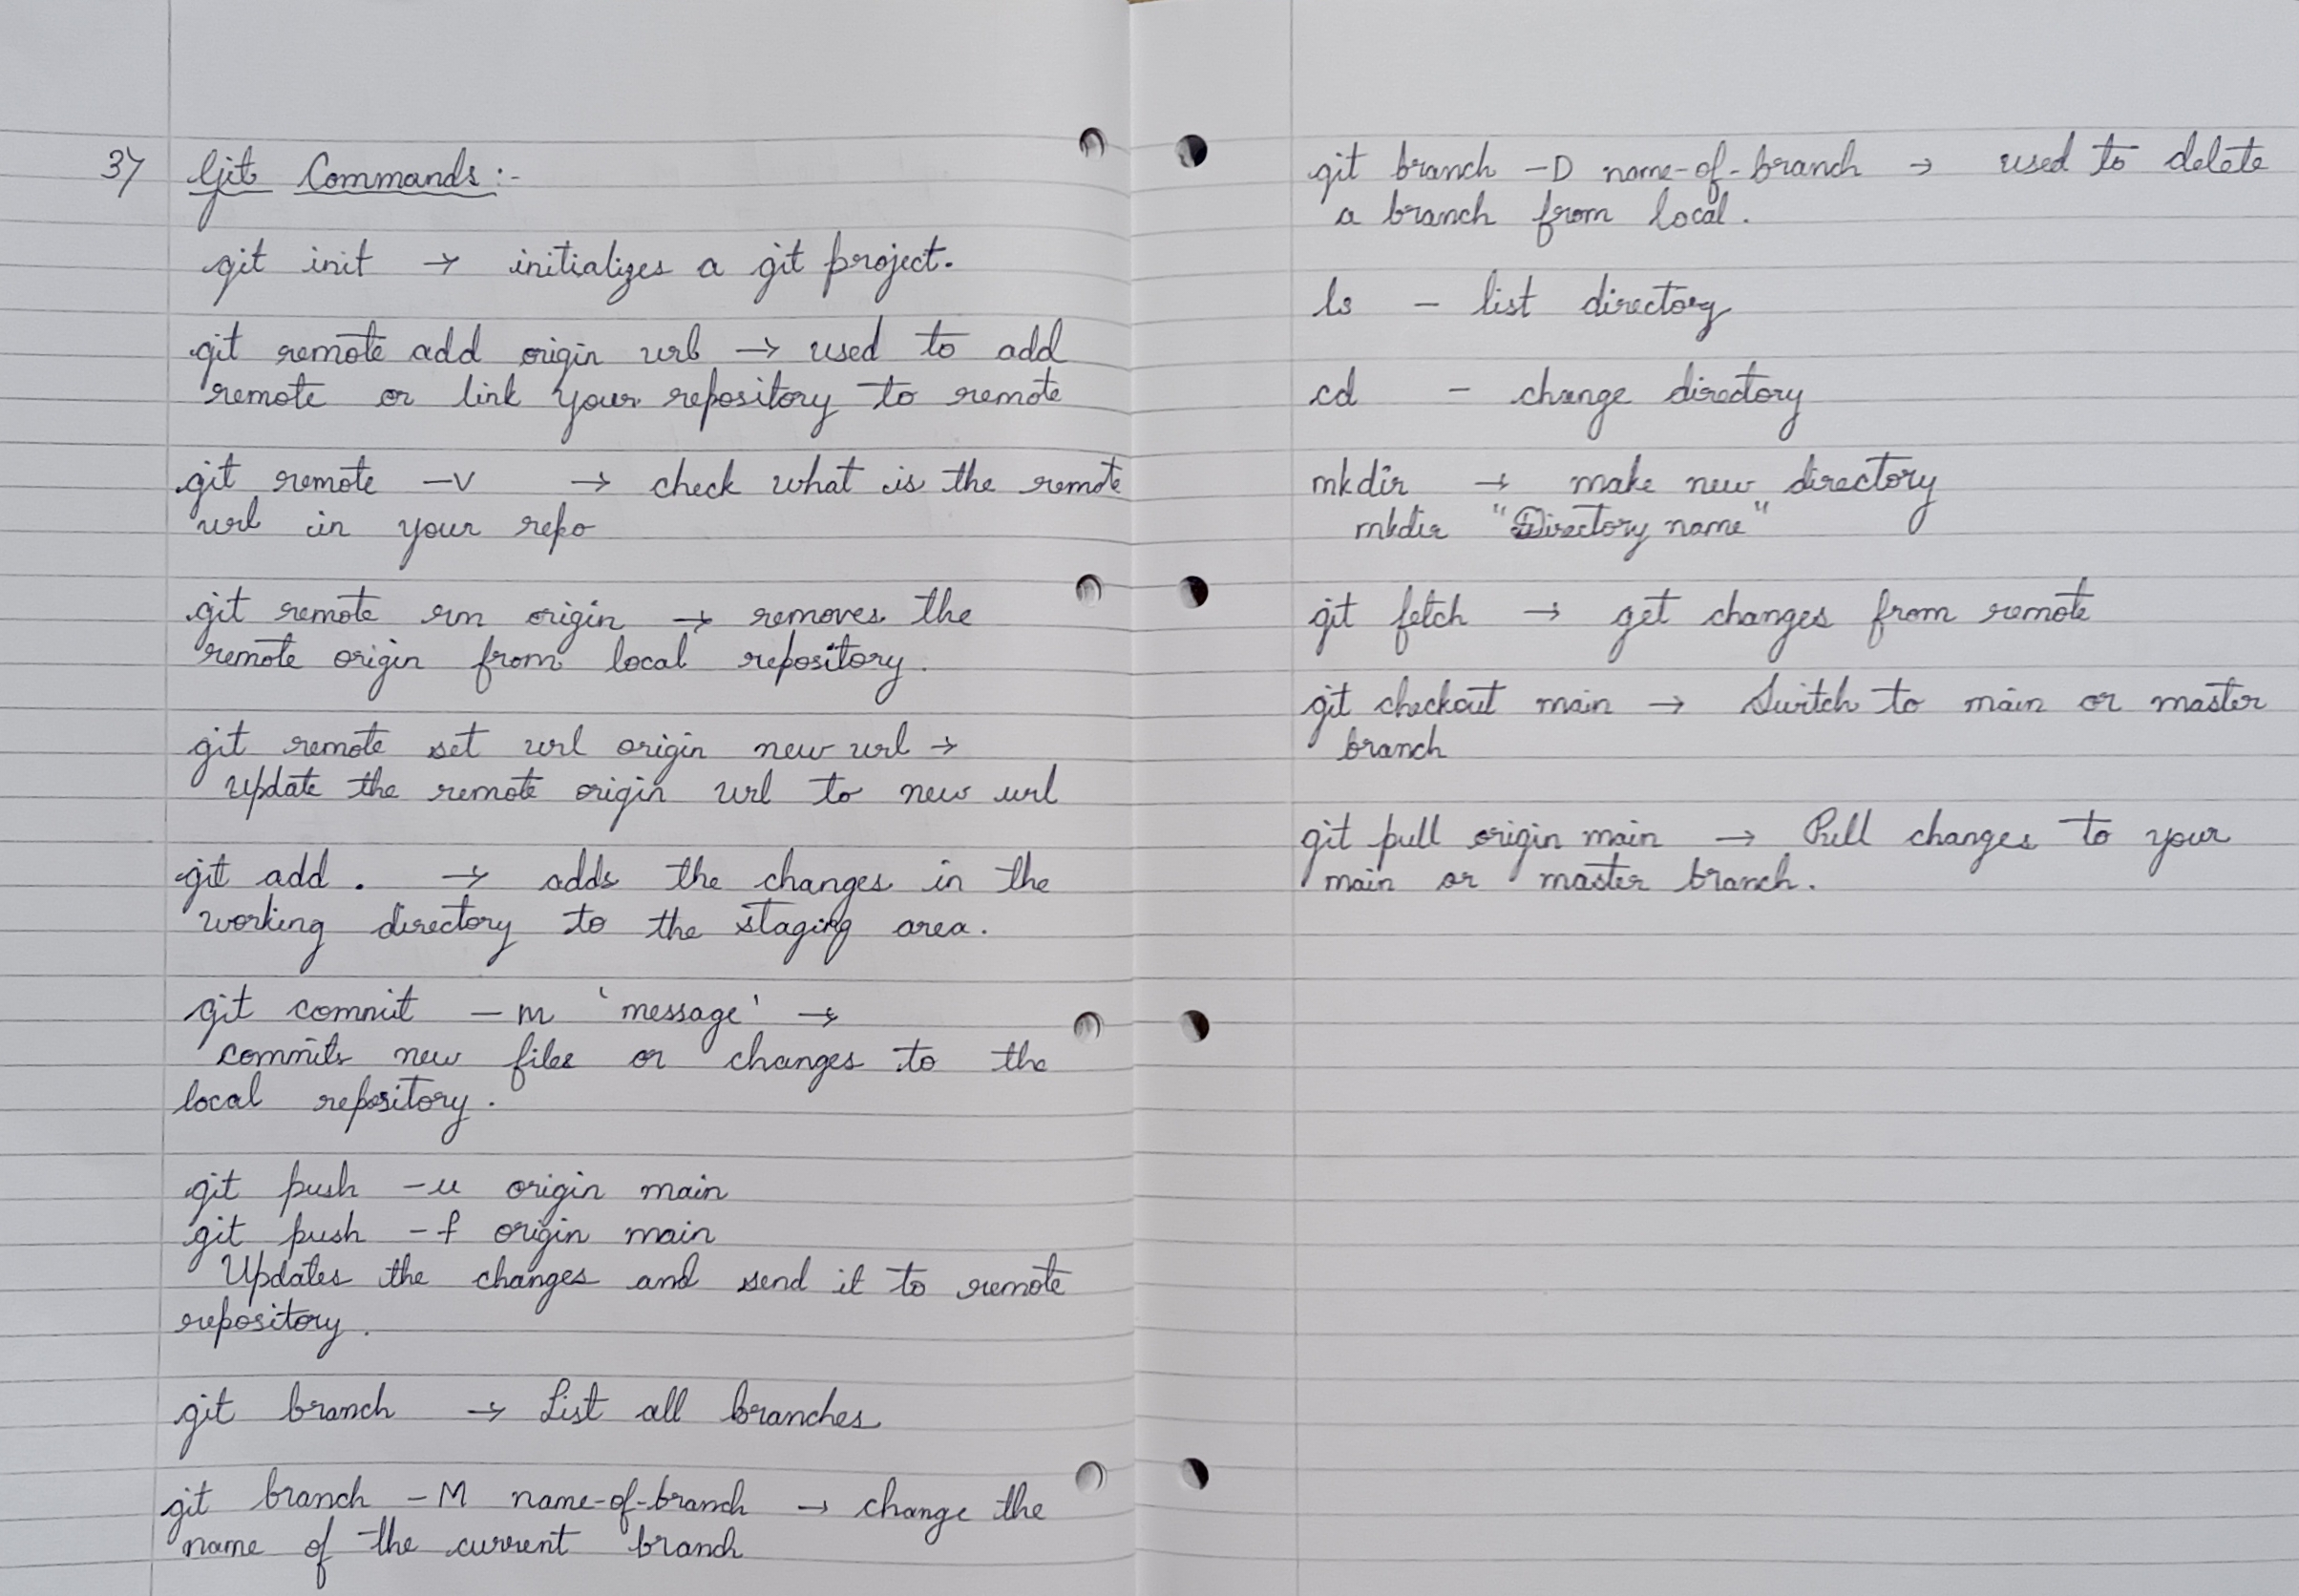 3) Git Commands :-
git init → initializes a git project.
git remote add origin url → used to add
remote or link your repository to remote
git remote -v → check what is the remote
url in your repo
git remote rm origin → removes the
remote origin from local repository.
git remote set url origin new url →
Update the remote origin url to new url
git add . → adds the changes in the
working directory to the staging area.
git commit -m 'message' →
commits new files or changes to the
local repository.
git push -u origin main
git push -f origin main
Updates the changes and send it to remote
repository.
git branch → List all branches
git branch -M name-of-branch → change the
name of the current branch
git branch -D name-of-branch → used to delete
a branch from local.
ls - list directory
cd - change directory
mkdir → make new directory
mkdir "Directory name"
git fetch → get changes from remote
git checkout main → Switch to main or master
branch
git pull origin main → Pull changes to your
main or master branch.